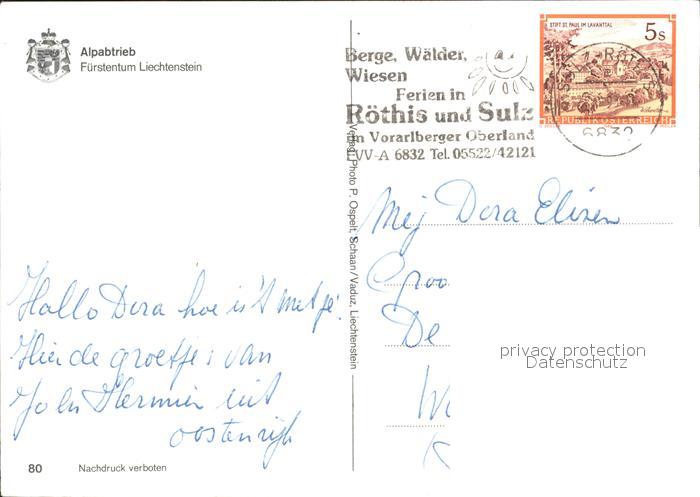 Alpabtrieb
Fürstentum Liechtenstein
Berge, Wälder,
Wiesen
Ferien in
Röthis und Sulz
im Vorarlberger Oberland
EVV-A 6832 Tel. 05522/42121
STIFT ST. PAUL IM LAVANTTAL
5s
REPUBLIK ÖSTERREICH
SULZ-RÖTHIS
6832
Verlag: Photo P. Ospelt, Schaan/Vaduz, Liechtenstein
Mej Dora Elisen
Groo
De
W
K
privacy protection
Datenschutz
Hallo Dora hoe is't met je!
Hier de groetjes van
John Hermien uit
oostenrijk
80
Nachdruck verboten